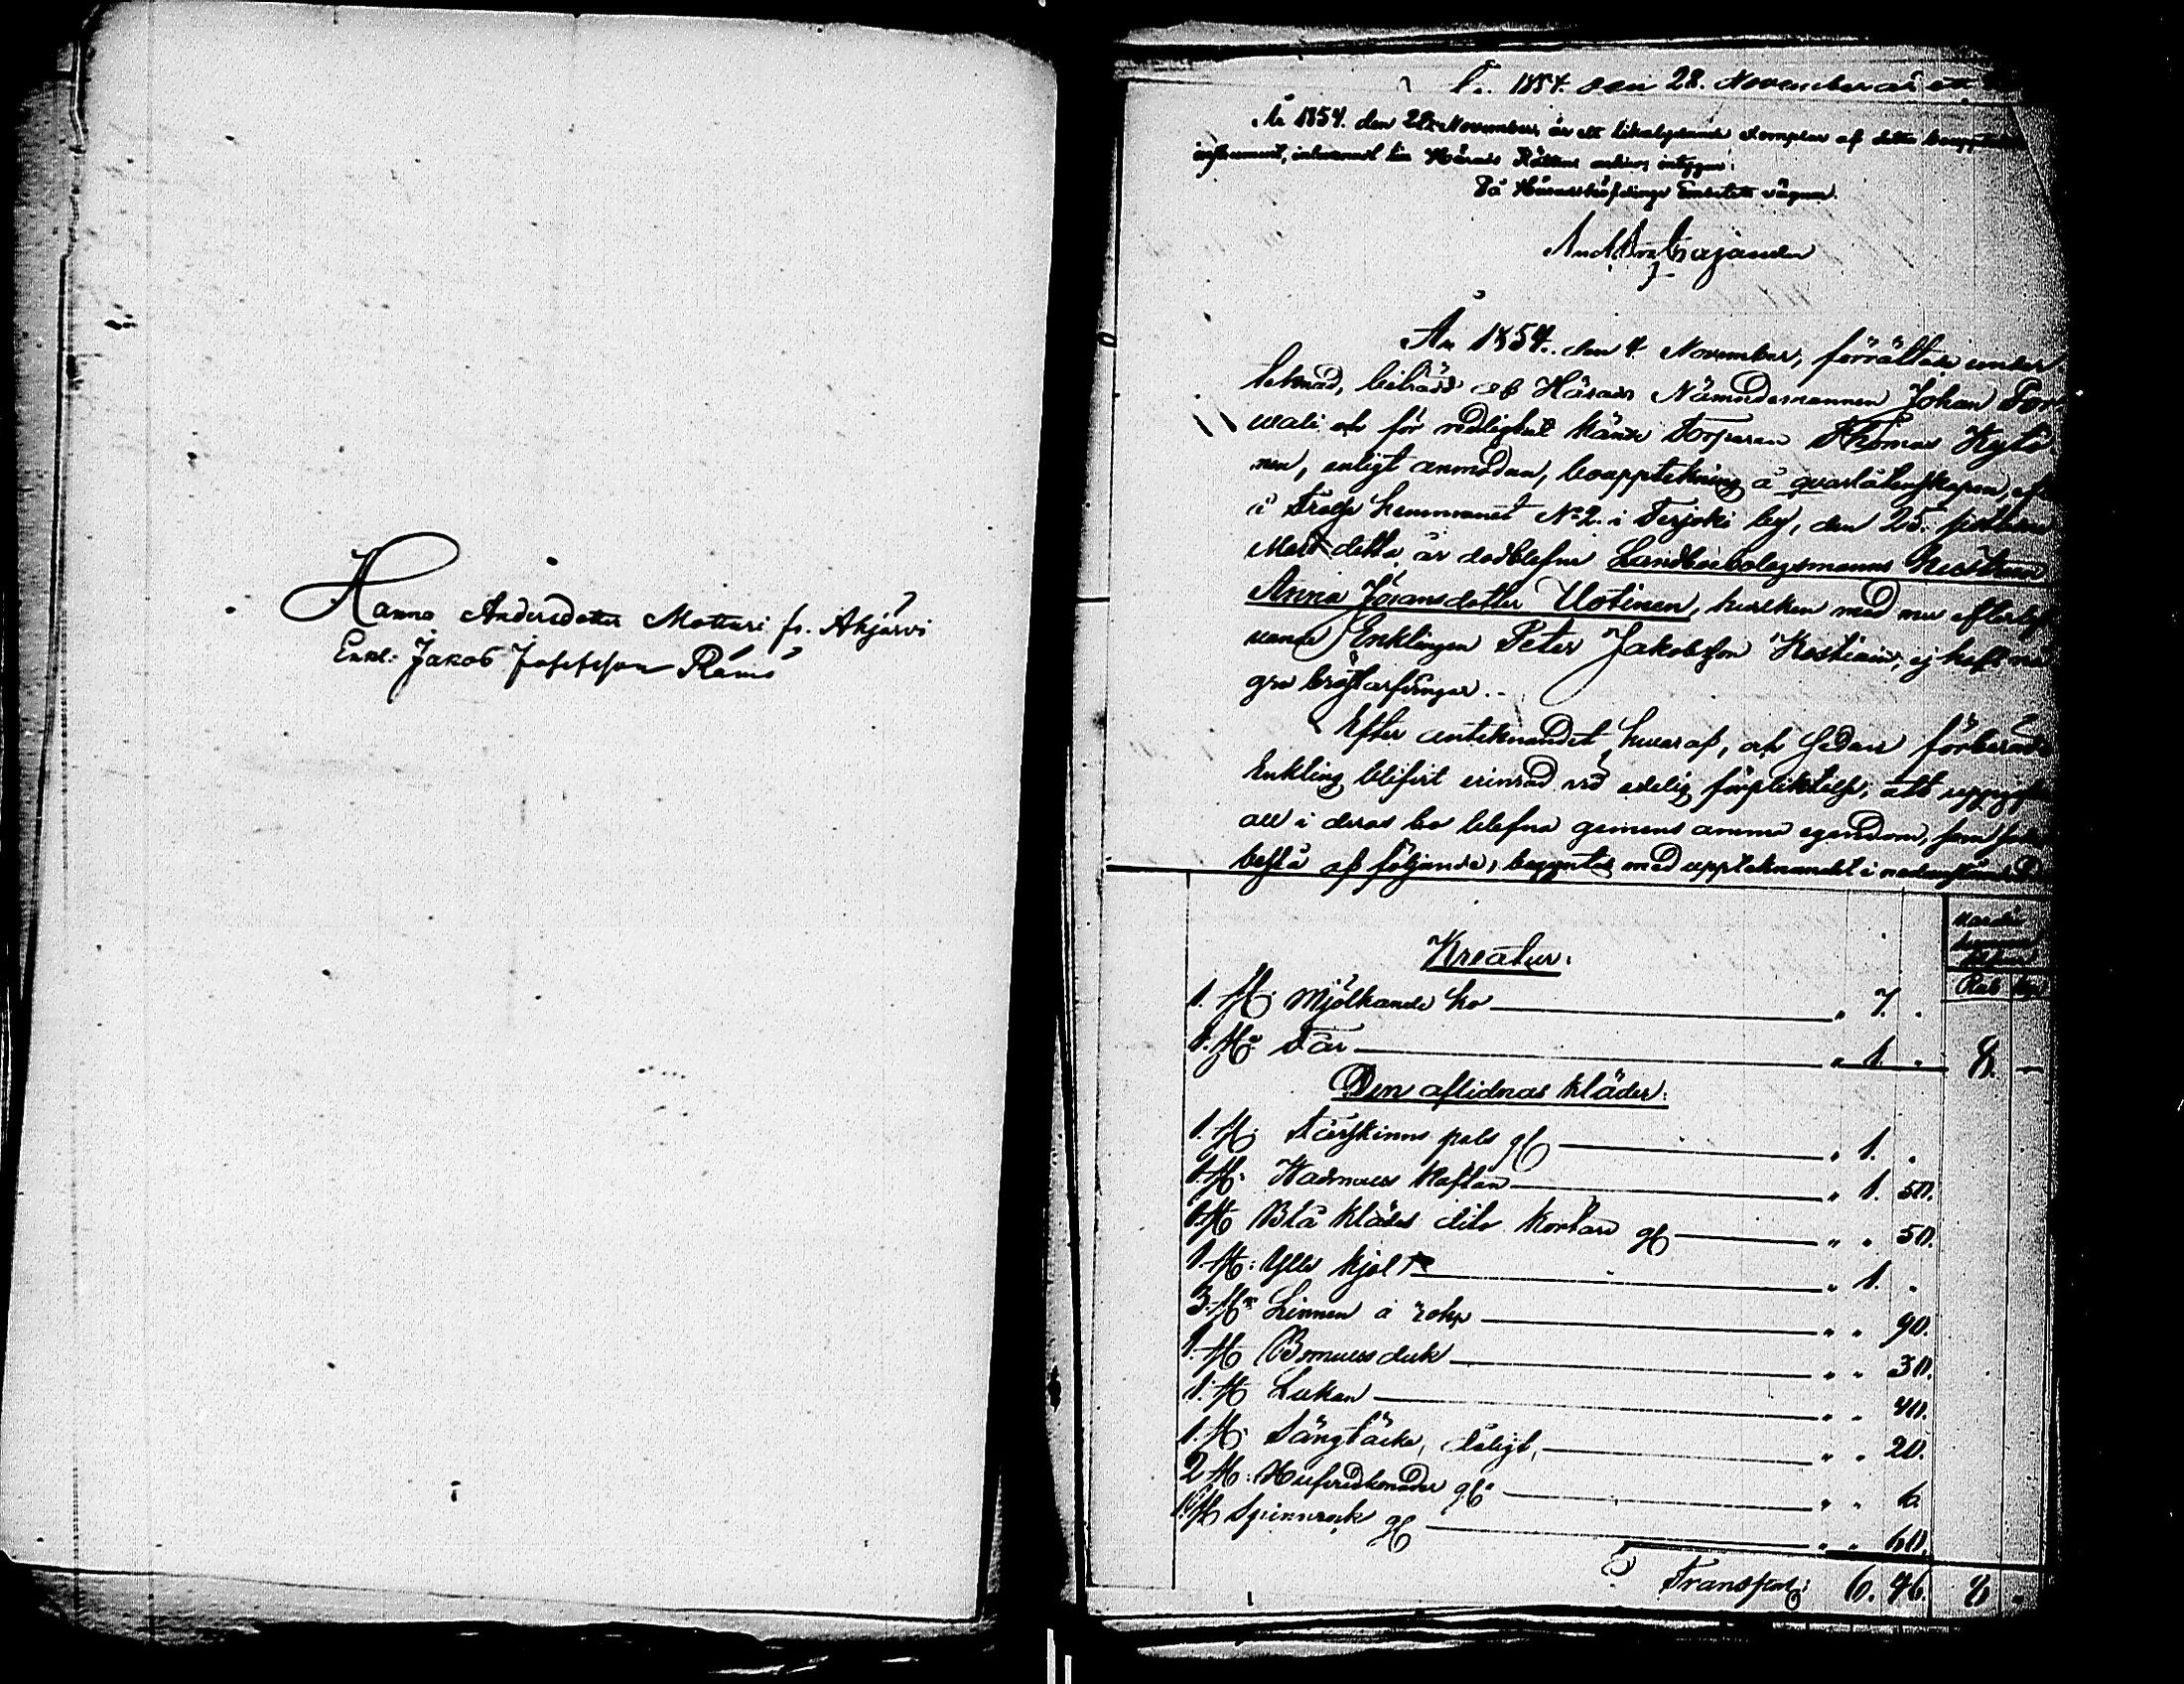 Hanna Andersdotter Motturi fr. Akjärvi
Enkl: Jakob Josefsson Rämö
1854. den 28. November är ett
År 1854. den 28. November, är ett likalydande exemplar af detta bouppteknings
instrument, inlemnat till Härads Rättens arkiv, intygar.
På Häradshöfdinge Embetets vägnar.
Cajander
År 1854. den 4. November, förrättade under
teknad, biträdd af Härads Nämndemannen Johan
wali och för redlighet kände Torparen Thomas Kytö
nen, enligt anmodan, bouppteknig å qvarlåtenskapen, efter
i Trolje hemmanet No 2. i Terjoki by, den 25. sistledne
Mars detta år dödblefne Landbobolagsmanns Hustrun
Anna Johansdotter Uotinen, hvilken med nu efterlef
vande Enklingen Peter Jakobsson Kostiain, ej haft nå
gra bröstarfvingar.
Efter anteknandet hvaraf, och sedan förberörde
Enkling blifvit erinrad vid edelig förpliktelse, att uppgifva
all i deras bo blefna gemensamma egendom, som sades
bestå af följande, begyntes med uppteknandet i nedanstående
Kreatur: Rub Kop
1. St: Mjölkande ko " 7. "
1. St: Får " 1. " 8. —
Den aflidnas kläder:
1. St: Fårskinns pels gl " 1. "
1. St: Wadmals kaftan " 1. 50.
1. St Blå klädes dito kortare gl " " 50.
1. St: Ylle kjol " 1. "
3. St: Linnen á 30 kp " " 90.
1. St Bomulls duk " " 30.
1. St Lakan " " 40.
1. St: Sängtäcke, dåligt, " " 20.
2 St: Hufvudbonader gl: " " 6
1. St Spinnrock gl " " 60.
Transport: 6. 46. 8